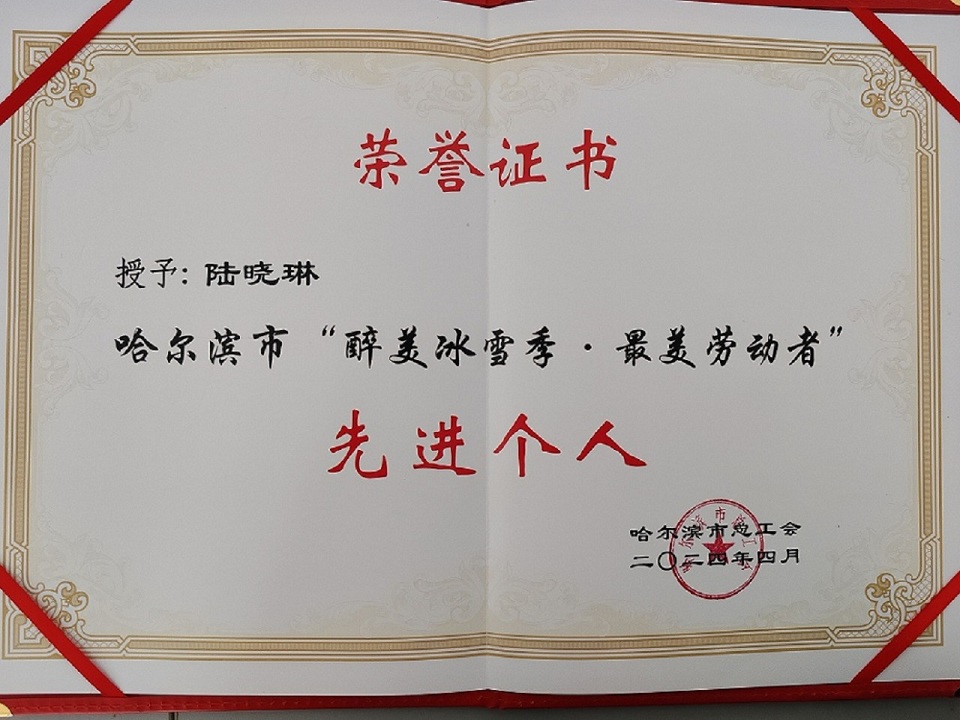 荣誉证书
授予：陆晓琳
哈尔滨市“醉美冰雪季·最美劳动者”
先进个人
哈尔滨市总工会
二〇二四年四月
哈尔滨市总工会